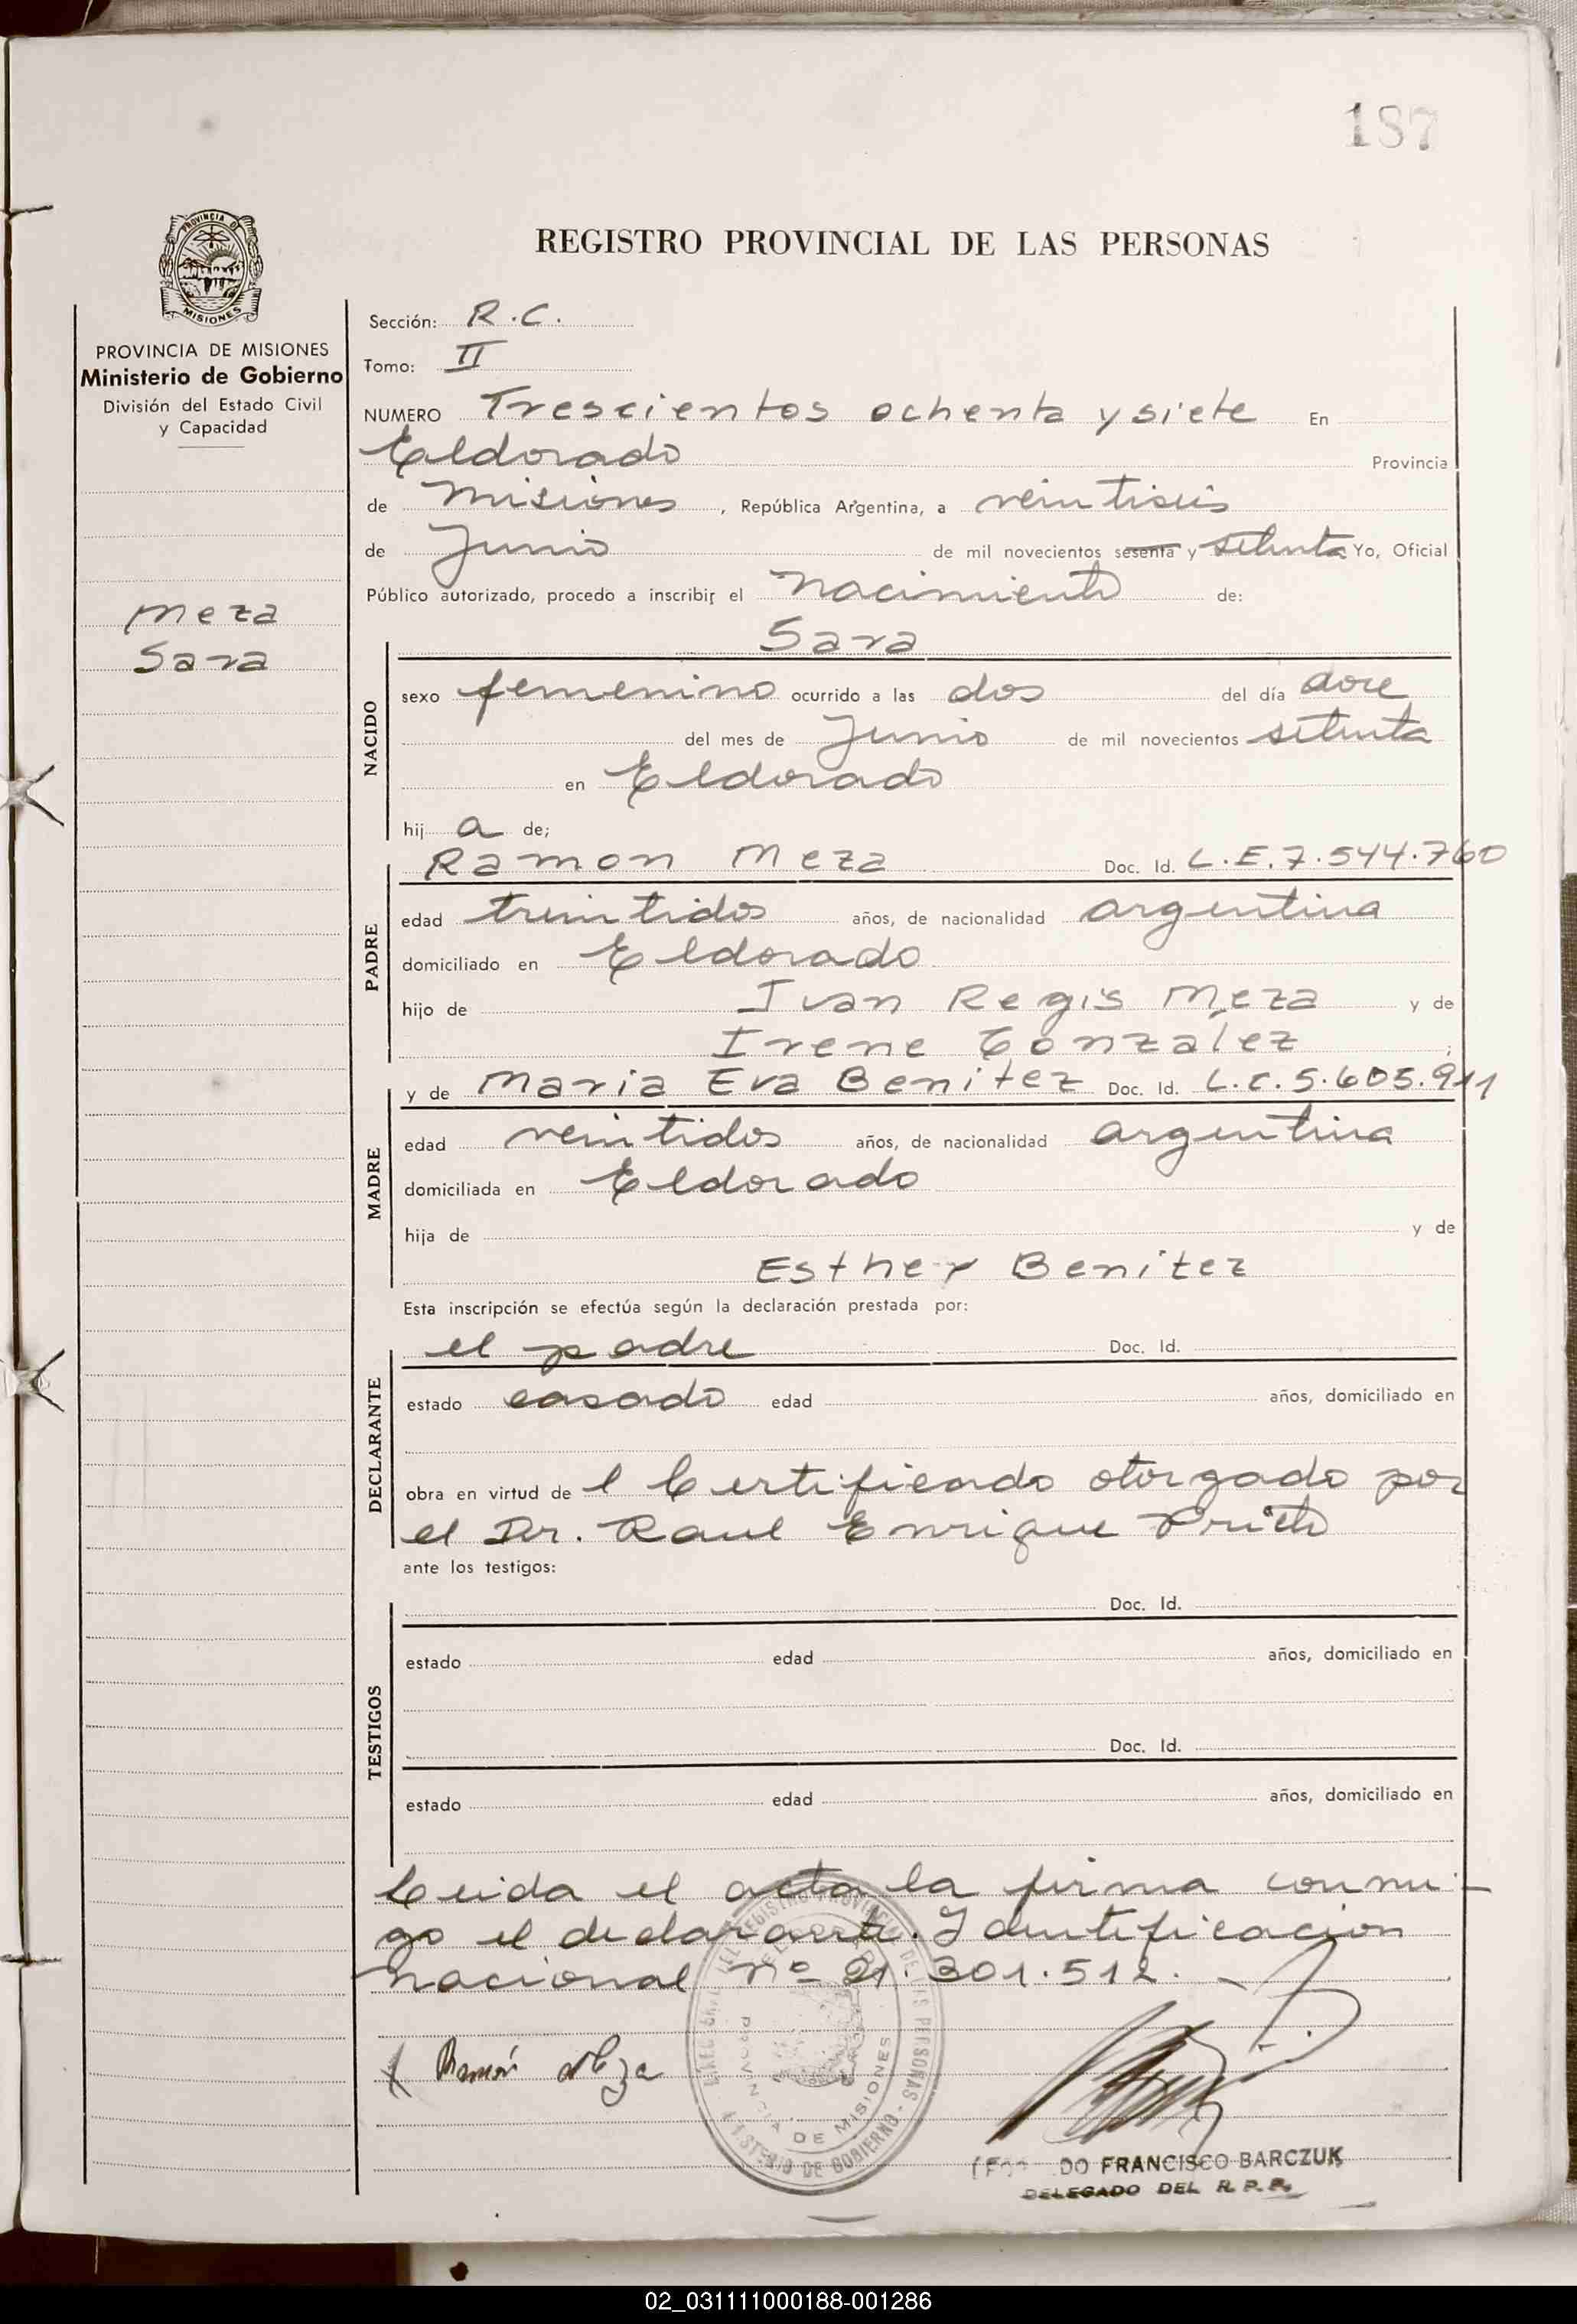 187
PROVINCIA DE
MISIONES
PROVINCIA DE MISIONES
Ministerio de Gobierno
División del Estado Civil
y Capacidad
Meza
Sara
REGISTRO PROVINCIAL DE LAS PERSONAS
Sección: R.C.
Tomo: II
NUMERO Trescientos ochenta y siete En
Eldorado Provincia
de Misiones, República Argentina, a veintiseis
de Junio de mil novecientos sesenta y setenta Yo, Oficial
Público autorizado, procedo a inscribir el nacimiento de:
Sara
NACIDO
sexo femenino ocurrido a las dos del día doce
del mes de Junio de mil novecientos setenta
en Eldorado
hij a de;
Ramon Meza Doc. Id. L.E.7.544.760
PADRE
edad treintidos años, de nacionalidad argentina
domiciliado en Eldorado
hijo de Ivan Regis Meza y de
Irene Gonzalez ;
y de Maria Eva Benitez Doc. Id. L.C.5.605.911
MADRE
edad veintidos años, de nacionalidad argentina
domiciliada en Eldorado
hija de y de
Esther Benitez
Esta inscripción se efectúa según la declaración prestada por:
el padre Doc. Id.
DECLARANTE
estado casado edad años, domiciliado en
obra en virtud de l Certificado otorgado por
el Dr. Raul Enrique Prieto
ante los testigos:
Doc. Id.
TESTIGOS
estado edad años, domiciliado en
Doc. Id.
estado edad años, domiciliado en
Leida el acta la firma conmi-
go el declarante. Identificacion
nacional nº 21.301.512.
Ramón Meza
REGISTRO PROVINCIAL DE LAS PERSONAS
PROVINCIA DE MISIONES
MINISTERIO DE GOBIERNO
DO FRANCISCO BARCZUK
DELEGADO DEL R. P. P.
02_031111000188-001286